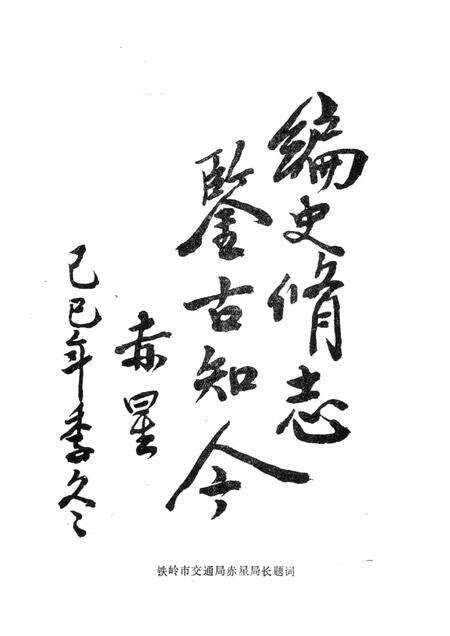 编史脩志
鑒古知今
赤星
己巳年季冬
铁岭市交通局赤星局长题词